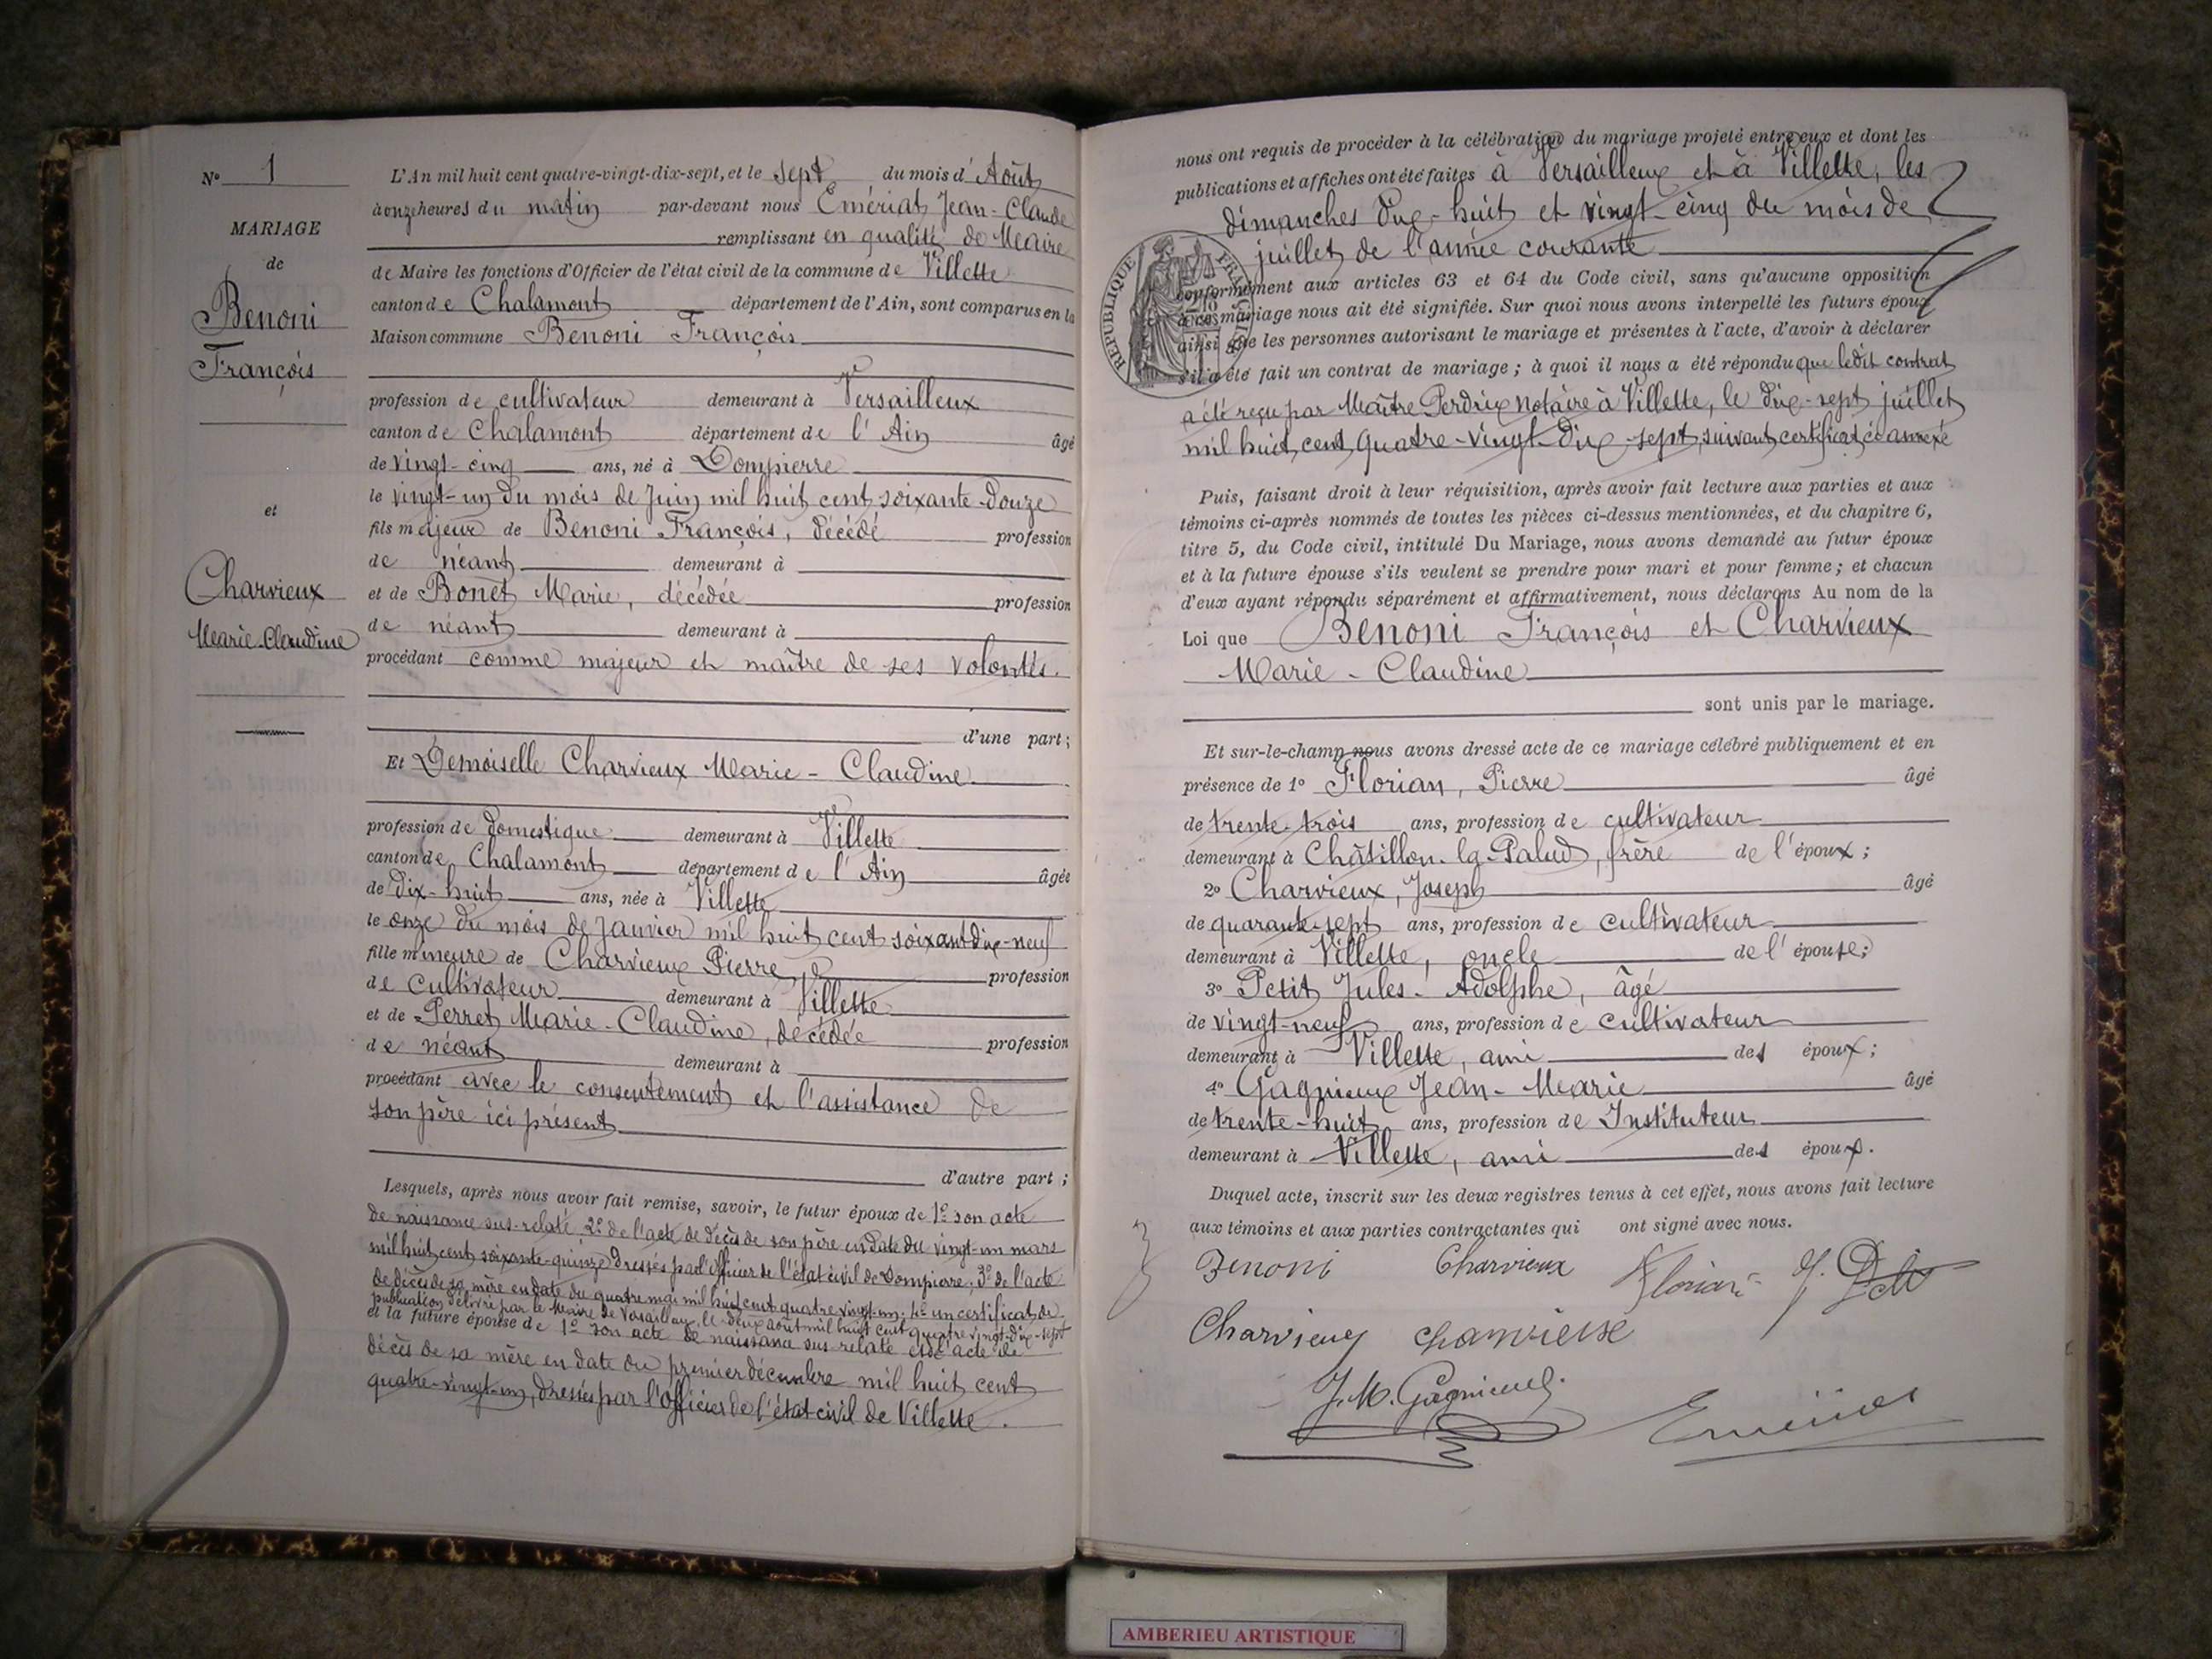 N° 1
MARIAGE
de
Benoni
François
et
Charvieux
Marie-Claudine
L'An mil huit cent quatre-vingt-dix-sept, et le sept du mois d'Août
à onze heures du matin par-devant nous Emériat Jean-Claude
remplissant en qualité de Maire
de Maire les fonctions d'Officier de l'état civil de la commune de Villette
canton de Chalamont département de l'Ain, sont comparus en la
Maison commune Benoni François
profession de cultivateur demeurant à Versailleux
canton de Chalamont département de l'Ain âgé
de vingt-cinq ans, né à Dompierre
le vingt-un du mois de Juin mil huit cent soixante-douze
fils majeur de Benoni François, décédé profession
de néant demeurant à
et de Bonet Marie, décédée profession
de néant demeurant à
procédant comme majeur et maître de ses volontés.
d'une part;
Et Demoiselle Charvieux Marie-Claudine
profession de domestique demeurant à Villette
canton de Chalamont département de l'Ain âgée
de dix-huit ans, née à Villette
le onze du mois de Janvier mil huit cent soixant dix-neuf
fille mineure de Charvieux Pierre, profession
de cultivateur demeurant à Villette
et de Perret Marie-Claudine, décédée profession
de néant demeurant à
procédant avec le consentement et l'assistance de
son père ici présent
d'autre part;
Lesquels, après nous avoir fait remise, savoir, le futur époux de 1° son acte
de naissance sus-relaté, 2° de l'acte de décès de son père en date du vingt-un mars
mil huit cent soixante-quinze dressés par l'officier de l'état civil de Dompierre; 3° de l'acte
de décès de sa mère en date du quatre mai mil huit cent quatre vingt-un; 4° un certificat de
publication délivré par le Maire de Versailleux, le deux août mil huit cent quatre vingt-dix-sept
et la future épouse de 1° son acte de naissance sus relaté et l'acte de
décès de sa mère en date du premier décembre mil huit cent
quatre-vingt-un, dressés par l'officier de l'état civil de Villette.
nous ont requis de procéder à la célébration du mariage projeté entre eux et dont les
publications et affiches ont été faites à Versailleux et à Villette, les
dimanches dix-huit et vingt-cinq du mois de
juillet de l'année courante
RÉPUBLIQUE FRANÇAISE
conformément aux articles 63 et 64 du Code civil, sans qu'aucune opposition
à ce mariage nous ait été signifiée. Sur quoi nous avons interpellé les futurs époux
ainsi que les personnes autorisant le mariage et présentes à l'acte, d'avoir à déclarer
s'il a été fait un contrat de mariage; à quoi il nous a été répondu que ledit contrat
a été reçu par Maître Perdrix notaire à Villette, le dix-sept juillet
mil huit cent quatre-vingt-dix-sept, suivant certificat ci-annexé
Puis, faisant droit à leur réquisition, après avoir fait lecture aux parties et aux
témoins ci-après nommés de toutes les pièces ci-dessus mentionnées, et du chapitre 6,
titre 5, du Code civil, intitulé Du Mariage, nous avons demandé au futur époux
et à la future épouse s'ils veulent se prendre pour mari et pour femme; et chacun
d'eux ayant répondu séparément et affirmativement, nous déclarons Au nom de la
Loi que Benoni François et Charvieux
Marie-Claudine
sont unis par le mariage.
Et sur-le-champ nous avons dressé acte de ce mariage célébré publiquement et en
présence de 1° Florian, Pierre âgé
de trente-trois ans, profession de cultivateur
demeurant à Châtillon-la-Palud, frère de l'époux;
2° Charvieux, Joseph âgé
de quarante-sept ans, profession de cultivateur
demeurant à Villette, oncle de l'épouse;
3° Petit Jules-Adolphe, âgé
de vingt-neuf ans, profession de cultivateur
demeurant à Villette, ami des époux;
4° Gagnieux Jean-Marie âgé
de trente-huit ans, profession de Instituteur
demeurant à Villette, ami des époux.
Duquel acte, inscrit sur les deux registres tenus à cet effet, nous avons fait lecture
aux témoins et aux parties contractantes qui ont signé avec nous.
Benoni Charvieux Florian J. Petit
Charvieux Charvieux
J. M. Gagnieux
AMBERIEU ARTISTIQUE